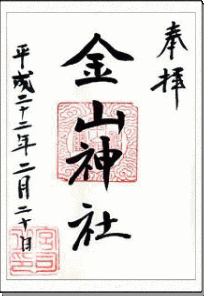 奉拝
金山神社
平成二十二年二月二十日